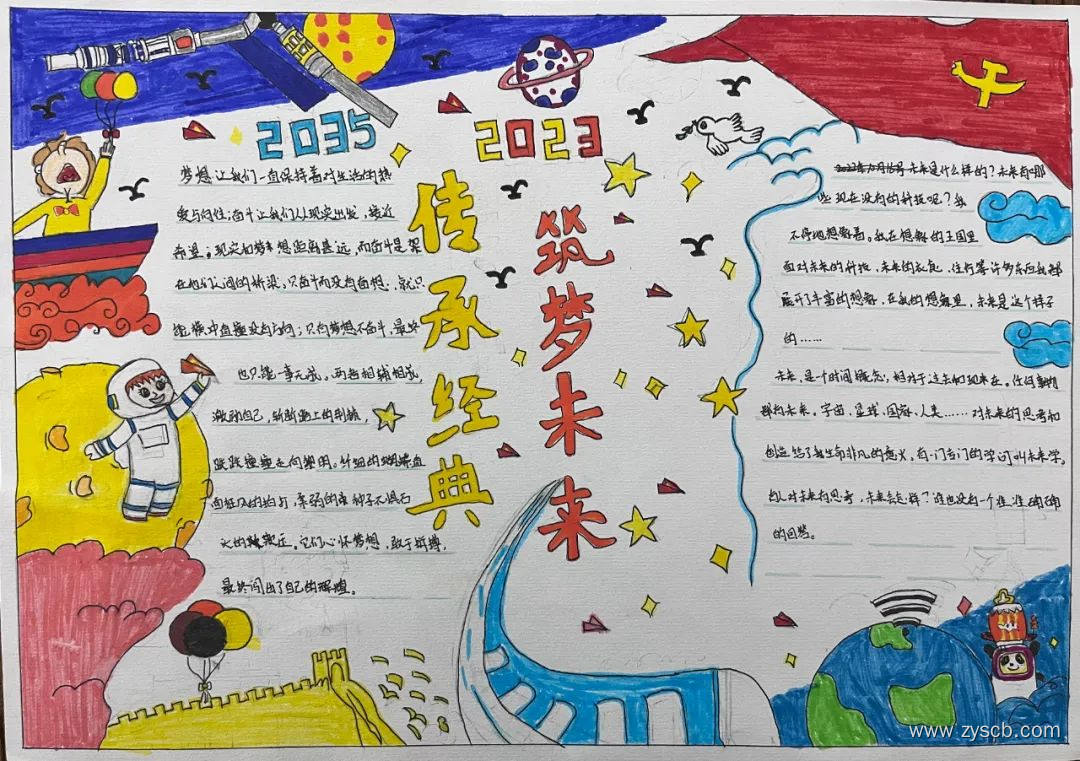 2035
2023
传承经典
筑梦未来
梦想让我们一直保持着对生活的热
爱与向往;奋斗让我们从现实出发,接近
希望。现实和梦想距离甚远,而奋斗是架
在他们之间的桥梁。只奋斗而没有梦想,就只
能横冲直撞没有方向;只有梦想不奋斗,最终
也只能一事无成。两者相辅相成,
激励自己,斩断路上的荆棘,
跌跌撞撞走向黎明。
面狂风的
它们心怀梦想,敢于拼搏,
最终闯出了自己的辉煌。
未来是什么样的?未来有哪
些现在没有的科技呢?我
不停地想象着。我在想象的王国里
面对未来的科技,未来的衣食,住行等许多东西我都
展开了丰富的想象,在我的想象里,未来是这个样子
的……
未来,是一个时间概念,相对于过去和现在。任何事情
都有未来。宇宙,星球,国家,人类……对未来的思考和
创造给了我生命非凡的意义,有一门专门的学问叫未来学,
的人对未来有思考,未来会怎样?谁也没有一个准准确确
的回答。
www.zyscb.com